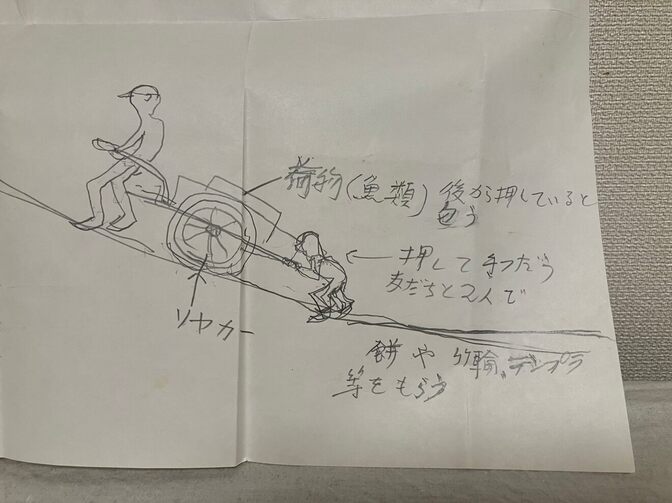 荷物(魚類) 後から押していると
匂う
押して手つだう
友だちと2人で
リヤカー
餅や竹輪、テンプラ
等をもらう